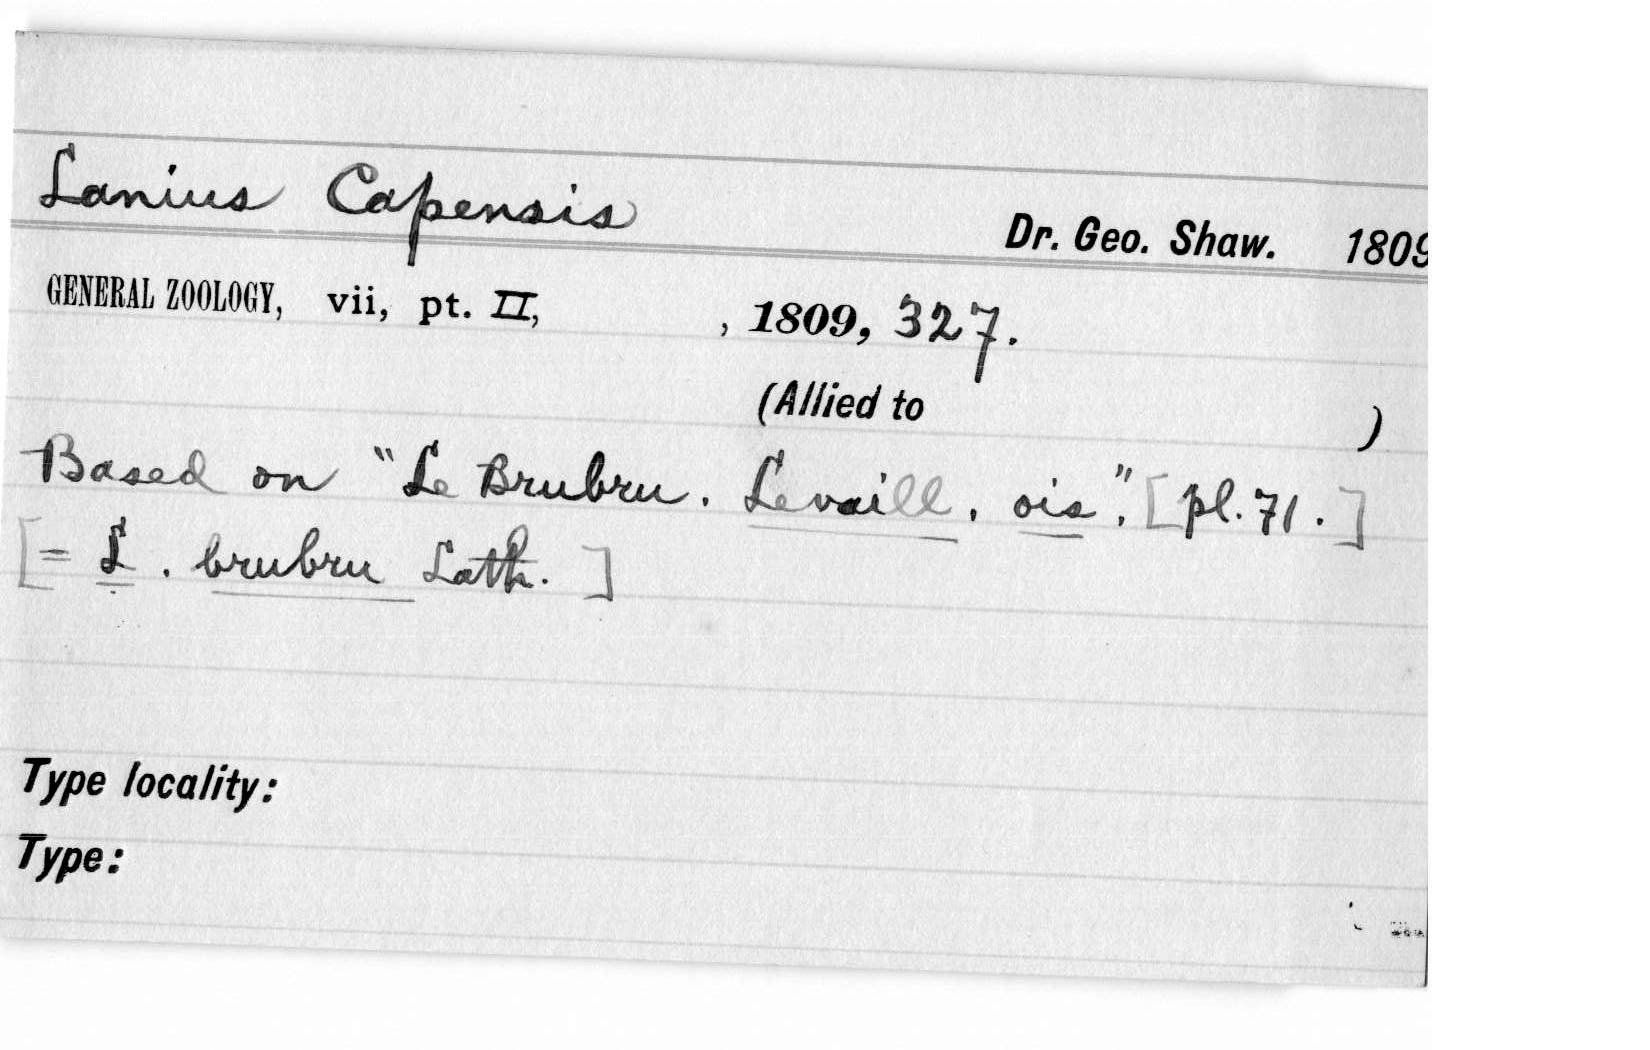 Lanius Capensis Dr. Geo. Shaw. 1809
GENERAL ZOOLOGY, vii, pt. II, , 1809, 327.
(Allied to )
Based on "Le Brubru. Levaill. ois." [pl. 71.]
[= L. brubru Lath.]
Type locality:
Type: